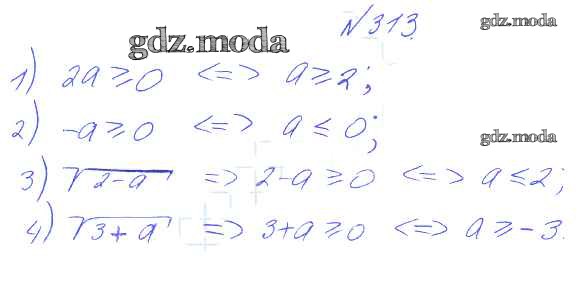 №313.
gdz.moda
gdz.moda
1) 2a ≥ 0 <=> a ≥ 2;
2) -a ≥ 0 <=> a ≤ 0;
gdz.moda
3) √2-a => 2-a ≥ 0 <=> a ≤ 2;
4) √3+a => 3+a ≥ 0 <=> a ≥ -3.